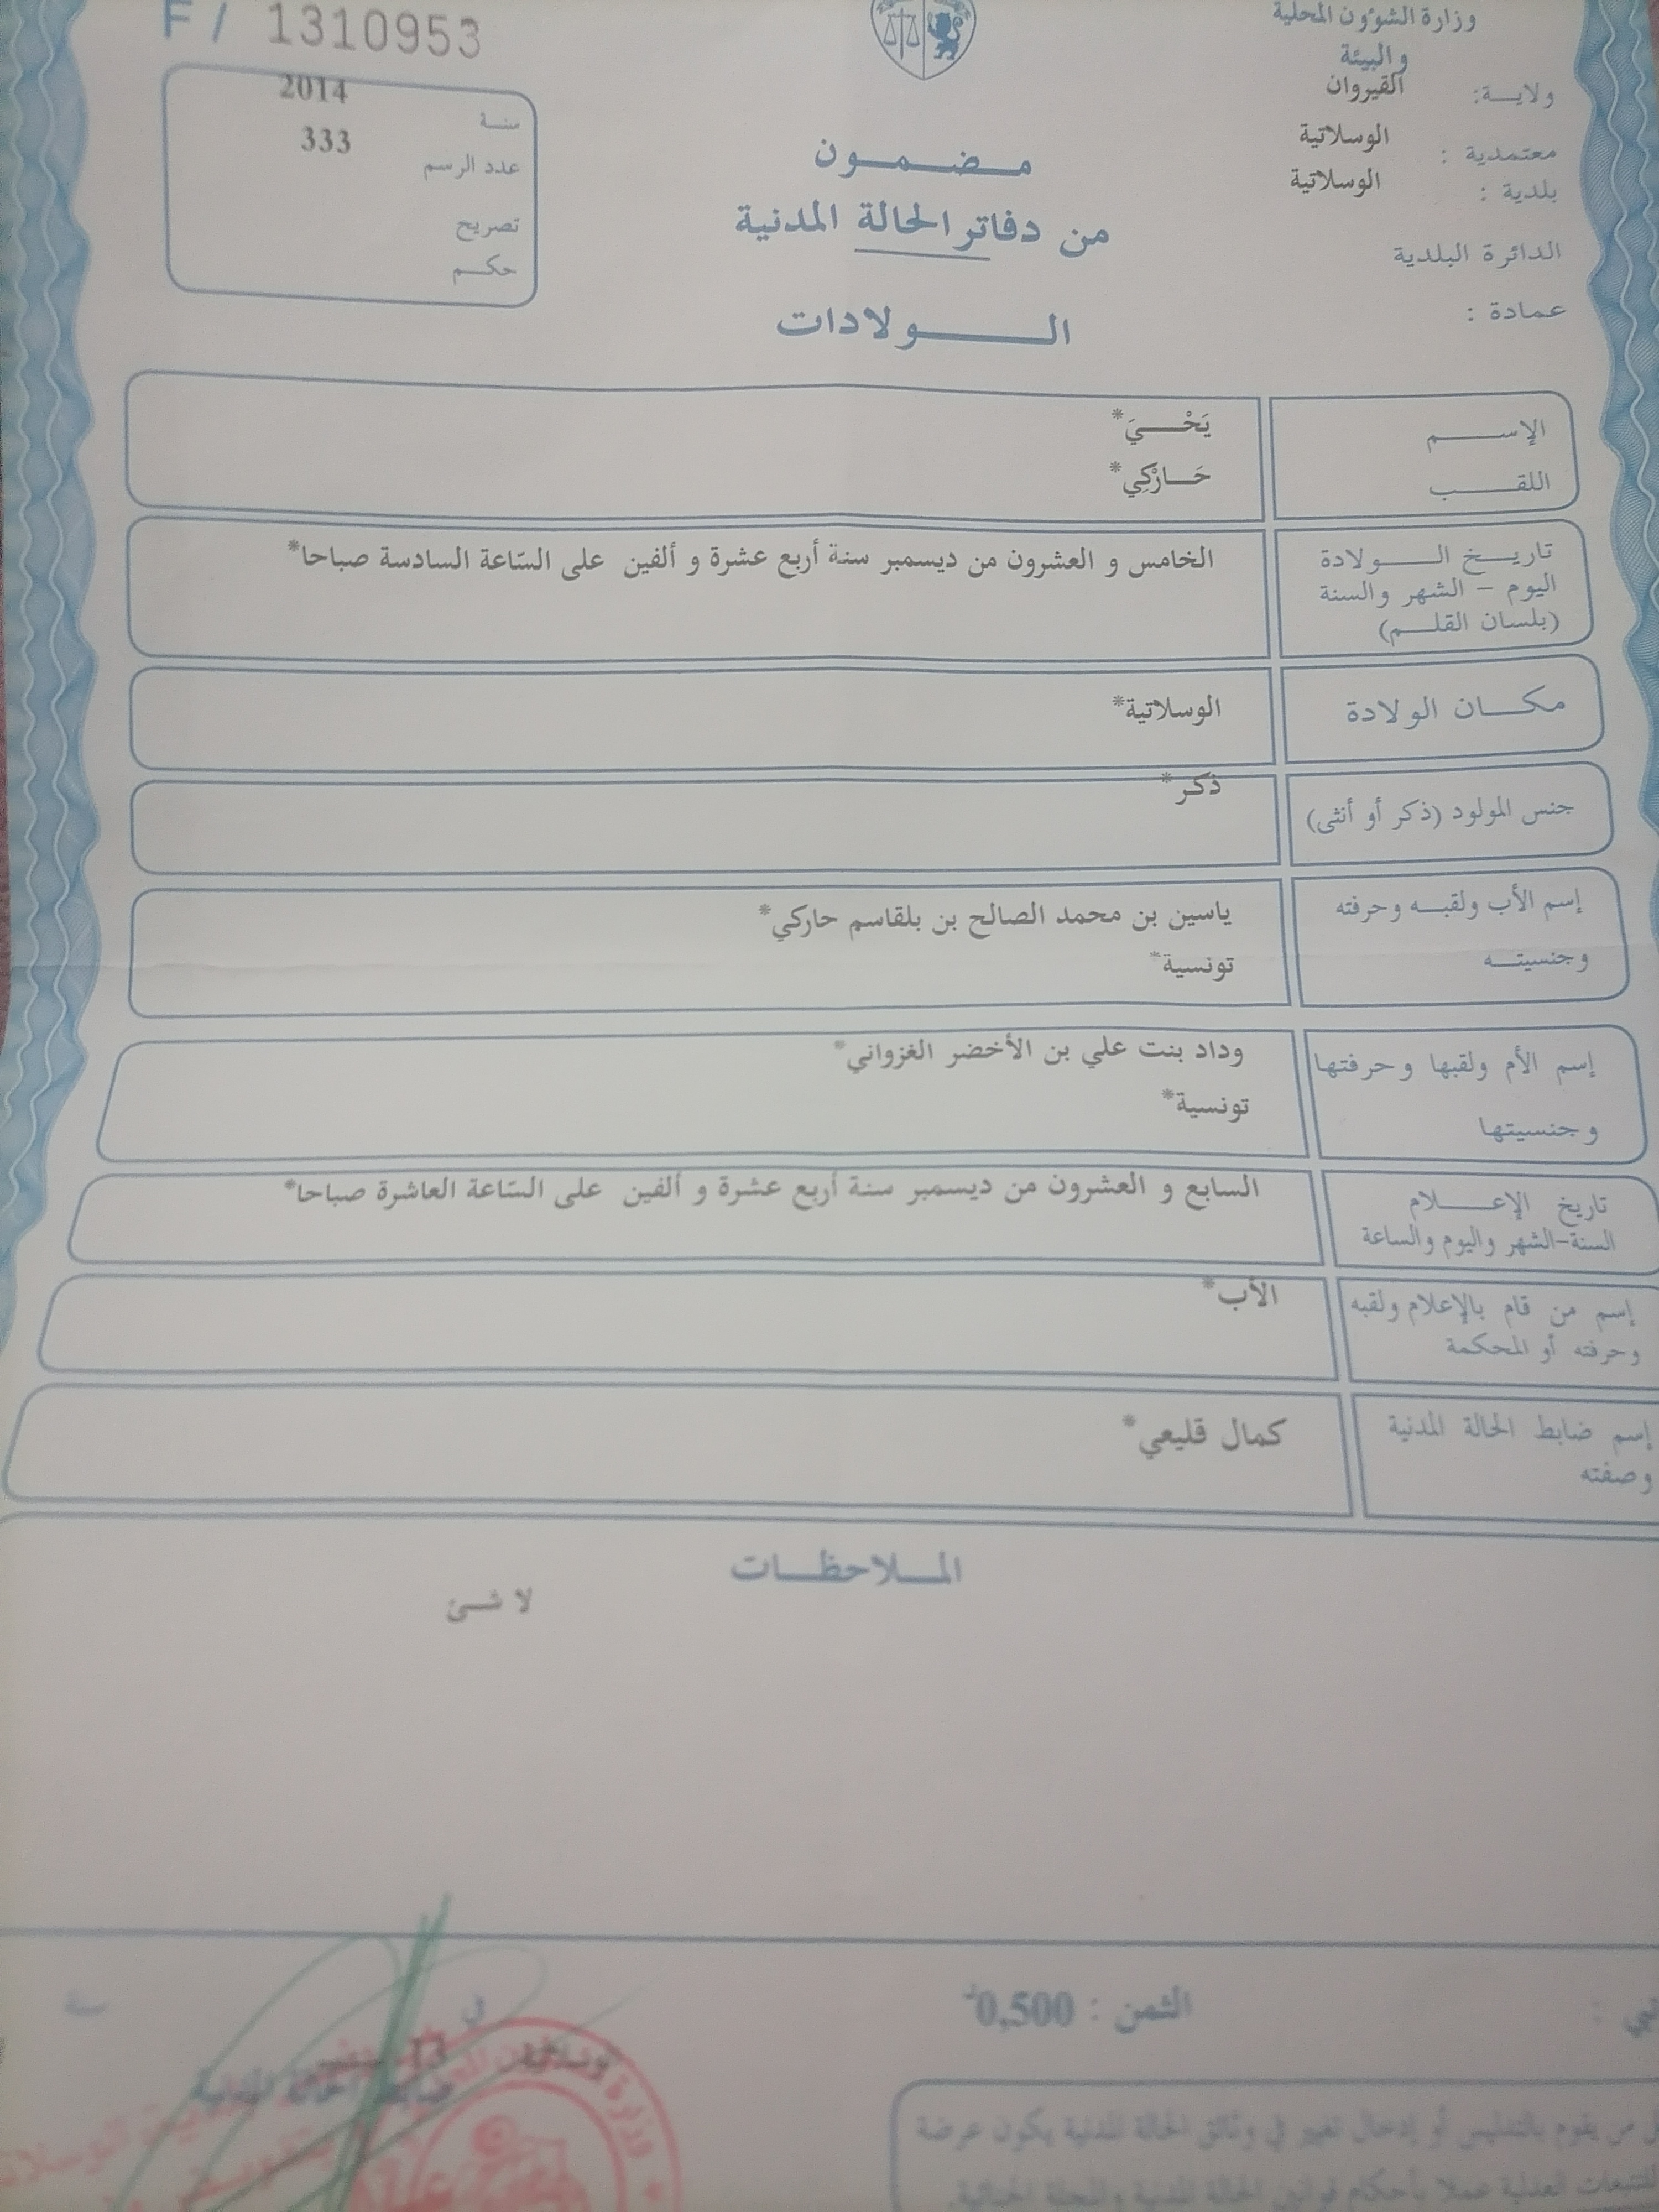 F / 1310953
وزارة الشؤون المحلية
والبيئة
ولاية: القيروان
معتمدية : الوسلاتية
بلدية : الوسلاتية
الدائرة البلدية
عمادة :
سنة 2014
عدد الرسم 333
تصريح
حكم
مضمون
من دفاتر الحالة المدنية
الولادات
الإسم يَحْيَ*
اللقب حَارْكِي*
تاريخ الولادة الخامس و العشرون من ديسمبر سنة أربع عشرة و ألفين على السّاعة السادسة صباحا*
اليوم – الشهر والسنة
(بلسان القلم)
مكان الولادة الوسلاتية*
جنس المولود (ذكر أو أنثى) ذكر*
إسم الأب ولقبه وحرفته ياسين بن محمد الصالح بن بلقاسم حاركي*
وجنسيته تونسية*
إسم الأم ولقبها وحرفتها وداد بنت علي بن الأخضر الغزواني*
وجنسيتها تونسية*
تاريخ الإعلام السابع و العشرون من ديسمبر سنة أربع عشرة و ألفين على السّاعة العاشرة صباحا*
السنة-الشهر واليوم والساعة
إسم من قام بالإعلام ولقبه الأب*
وحرفته أو المحكمة
إسم ضابط الحالة المدنية كمال قليعي*
وصفته
الملاحظات
لا شئ
الثمن : 0,500د
في سنة
13
ضابط الحالة المدنية
من يقوم بالتدليس أو إدخال تغيير في وثائق الحالة المدنية يكون عرضة
للتتبعات العدلية عملا بأحكام قوانين الحالة المدنية والمجلة الجنائية.